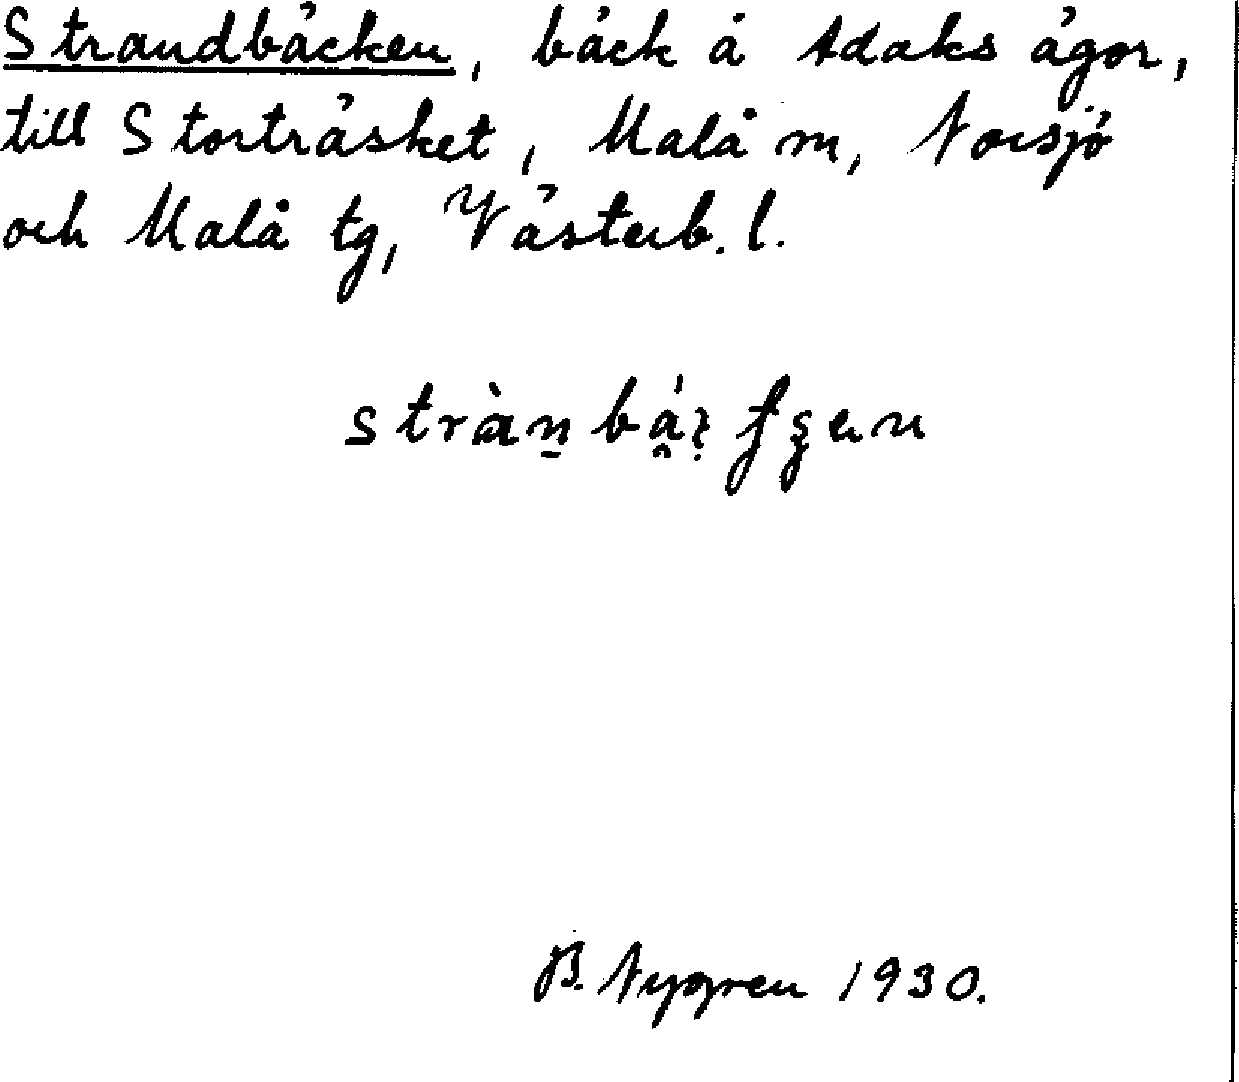 Strandbäcken, bäck å Adaks ägor,
till Storträsket, Malå m, Norsjö
och Malå tg, Västerb. l.
B. Nygren 1930.